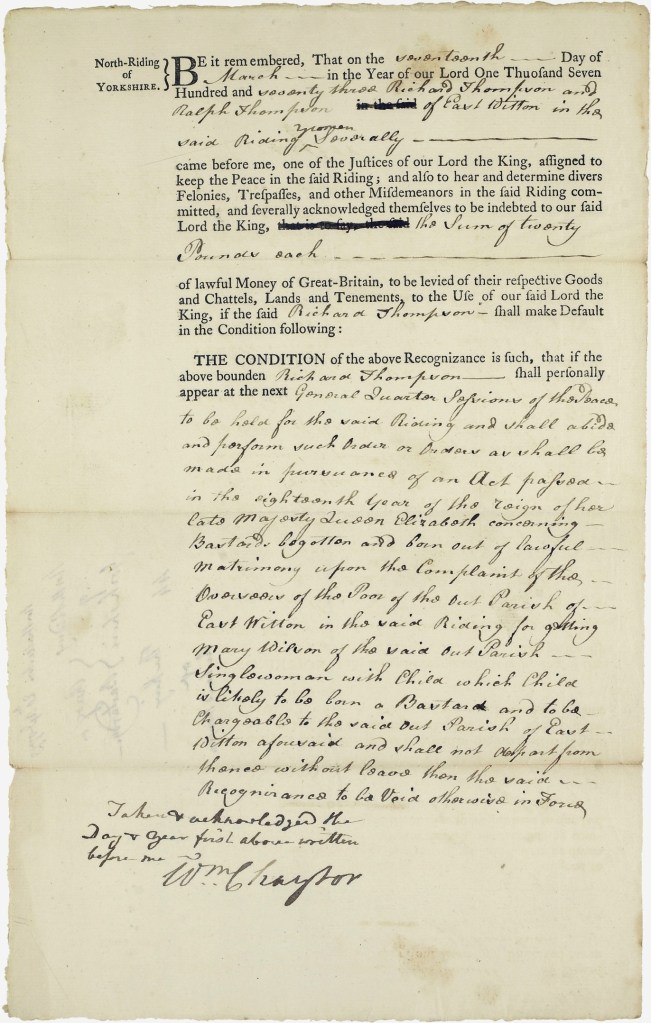 North-Riding
of
YORKSHIRE.
BE it remembered, That on the seventeenth Day of
March in the Year of our Lord One Thuosand Seven
Hundred and seventy three Richard Thompson and
Ralph Thompson in the said of East Witton in the
said Riding yeomen Severally
came before me, one of the Justices of our Lord the King, assigned to
keep the Peace in the said Riding; and also to hear and determine divers
Felonies, Trespasses, and other Misdemeanors in the said Riding com-
mitted, and severally acknowledged themselves to be indebted to our said
Lord the King, that is to say, the said the Sum of twenty
Pounds each
of lawful Money of Great-Britain, to be levied of their respective Goods
and Chattels, Lands and Tenements, to the Use of our said Lord the
King, if the said Richard Thompson shall make Default
in the Condition following:
THE CONDITION of the above Recognizance is such, that if the
above bounden Richard Thompson shall personally
appear at the next General Quarter Sessions of the Peace
to be held for the said Riding and shall abide
and perform such Order or Orders as shall be
made in pursuance of an Act passed
in the eighteenth Year of the reign of her
late Majesty Queen Elizabeth concerning
Bastards begotten and born out of lawful
Matrimony upon the Complaint of the
Overseers of the Poor of the Out Parish of
East Witton in the said Riding for getting
Mary Wilson of the said Out Parish
Singlewoman with Child which Child
is likely to be born a Bastard and to be
Chargeable to the said Out Parish of East
Witton aforesaid and shall not depart from
thence without leave then the said
Recognizance to be Void otherwise in Force
Taken & acknowledged the
Day & Year first above written
before me
Wm Chaytor